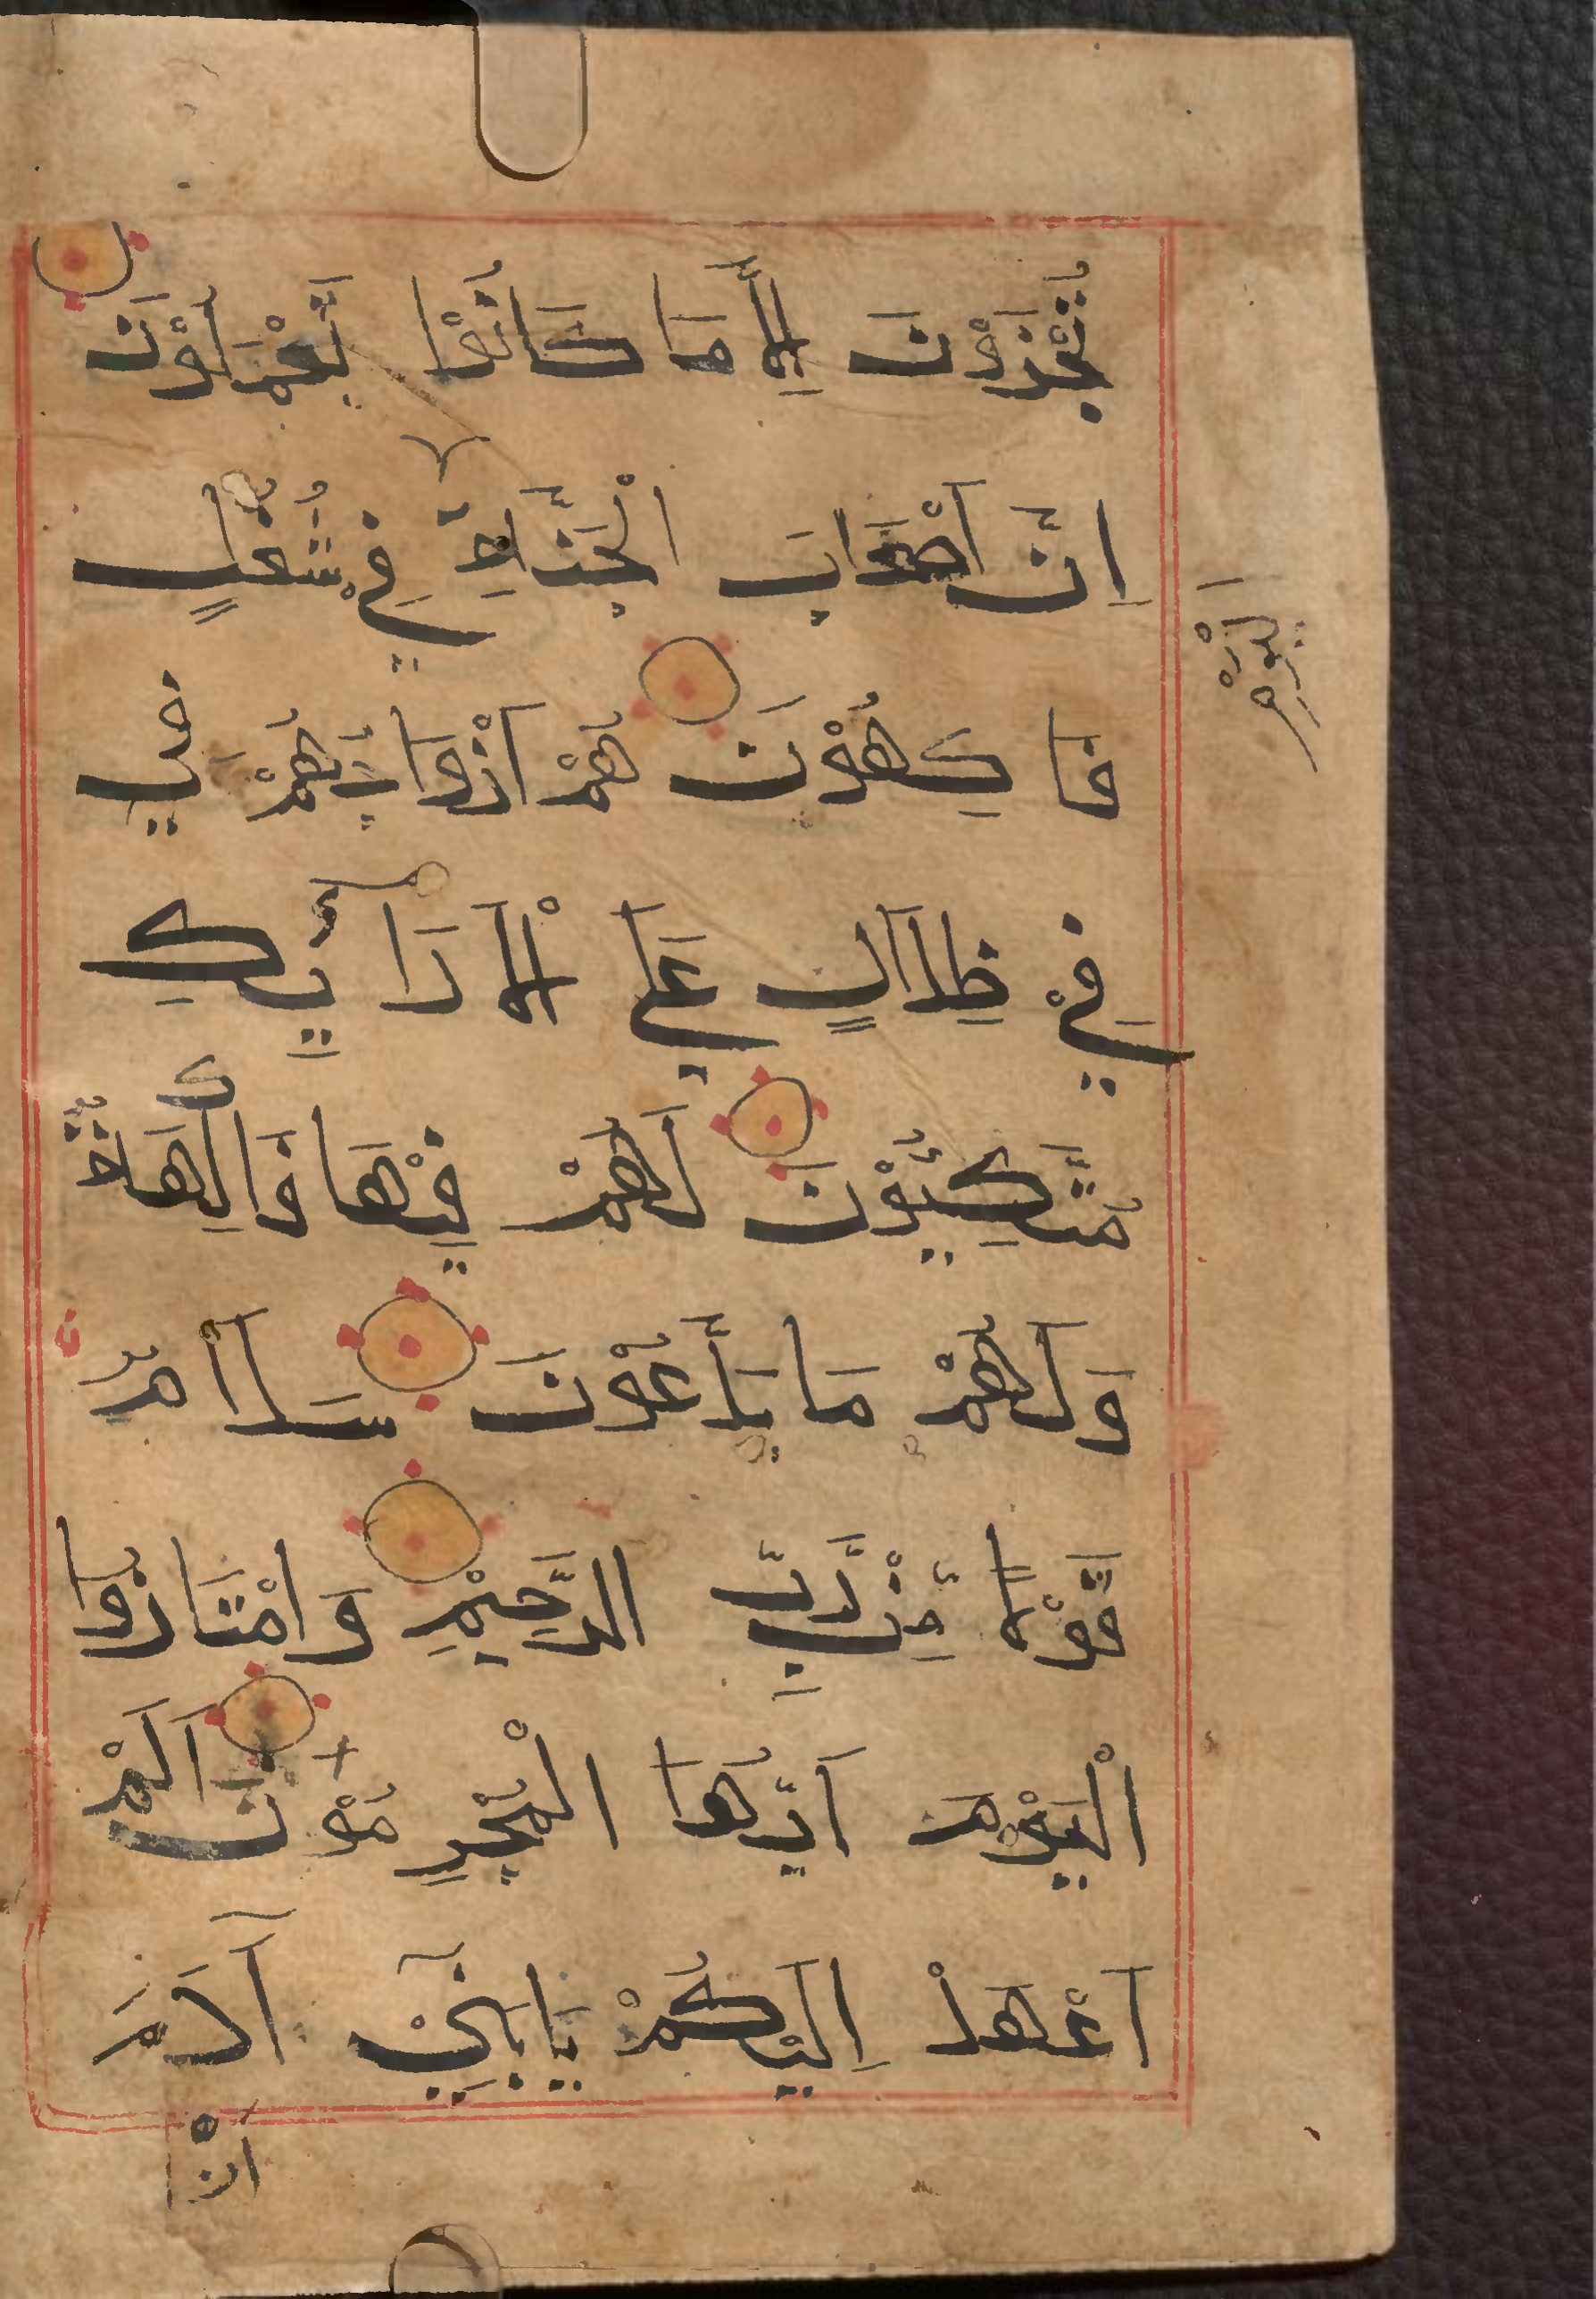 تُجْزَوْنَ إِلَّا مَا كَانُوْا تَعْمَلُوْنَ
اِنَّ اَصْحَابَ الْجَنَّةِ فِيْ شُغُلٍ
الْيَوْمَ
فَاكِهُوْنَ هُمْ اَزْوَاجُهُمْ
فِيْ ظِلَالٍ عَلَى الْاَرَآئِكِ
مُتَّكِئُوْنَ لَهُمْ فِيْهَا فَاكِهَةٌ
وَلَهُمْ مَا يَدَّعُوْنَ سَلَامٌ
قَوْلًا مِنْ رَّبٍّ الرَّحِيْمِ وَامْتَازُوا
الْيَوْمَ اَيُّهَا الْمُجْرِمُوْنَ اَلَمْ
اَعْهَدْ اِلَيْكُمْ يَا بَنِيْ آدَمَ
اَنْ